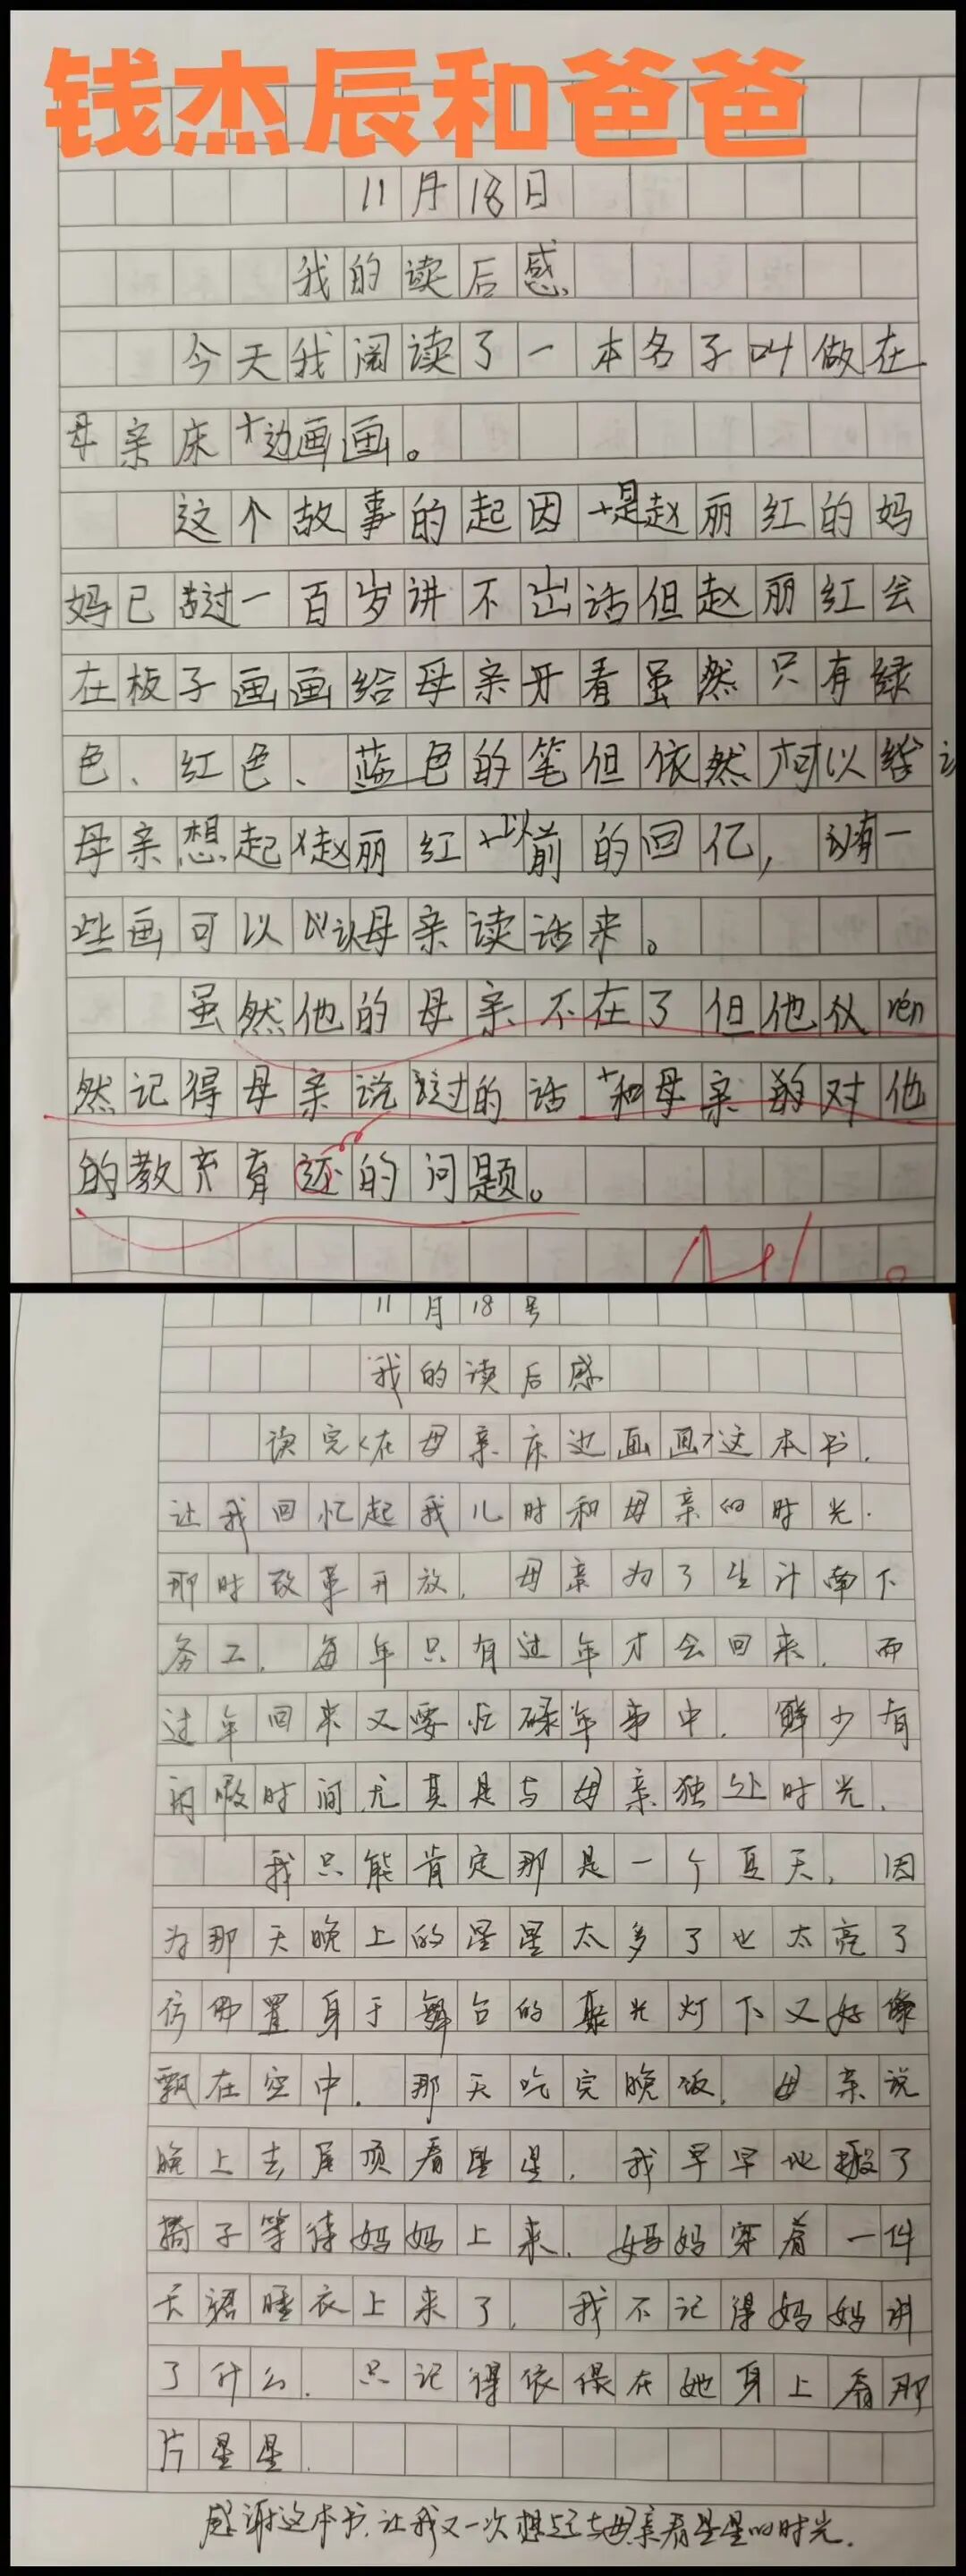 钱杰辰和爸爸
11月18日
我的读后感
今天我阅读了一本名子叫做在
母亲床边画画。
这个故事的起因是赵丽红的妈
妈已过一百岁讲不出话但赵丽红会
在板子画画给母亲看虽然只有绿
色、红色、蓝色的笔但依然可以给
母亲想起赵丽红以前的回亿,有一
些画可以认母亲读话来。
虽然他的母亲不在了但他仪rén
然记得母亲说过的话和母亲的对他
的教育还的问题。
11月18号
我的读后感
读完<在母亲床边画画>这本书,
让我回忆起我儿时和母亲的时光.
那时改革开放,母亲为了生计南下
务工,每年只有过年才会回来,而
过年回来又要忙碌年事中,鲜少有
闲暇时间尤其是与母亲独处时光,
我只能肯定那是一个夏天,因
为那天晚上的星星太多了也太亮了
仿佛置身于舞台的聚光灯下又好像
飘在空中.那天吃完晚饭,母亲说
晚上去屋顶看星星,我早早地搬了
椅子等待妈妈上来,妈妈穿着一件
长裙睡衣上来了,我不记得妈妈讲
了什么.只记得依偎在她身上看那
片星星.
感谢这本书,让我又一次想起与母亲看星星的时光.